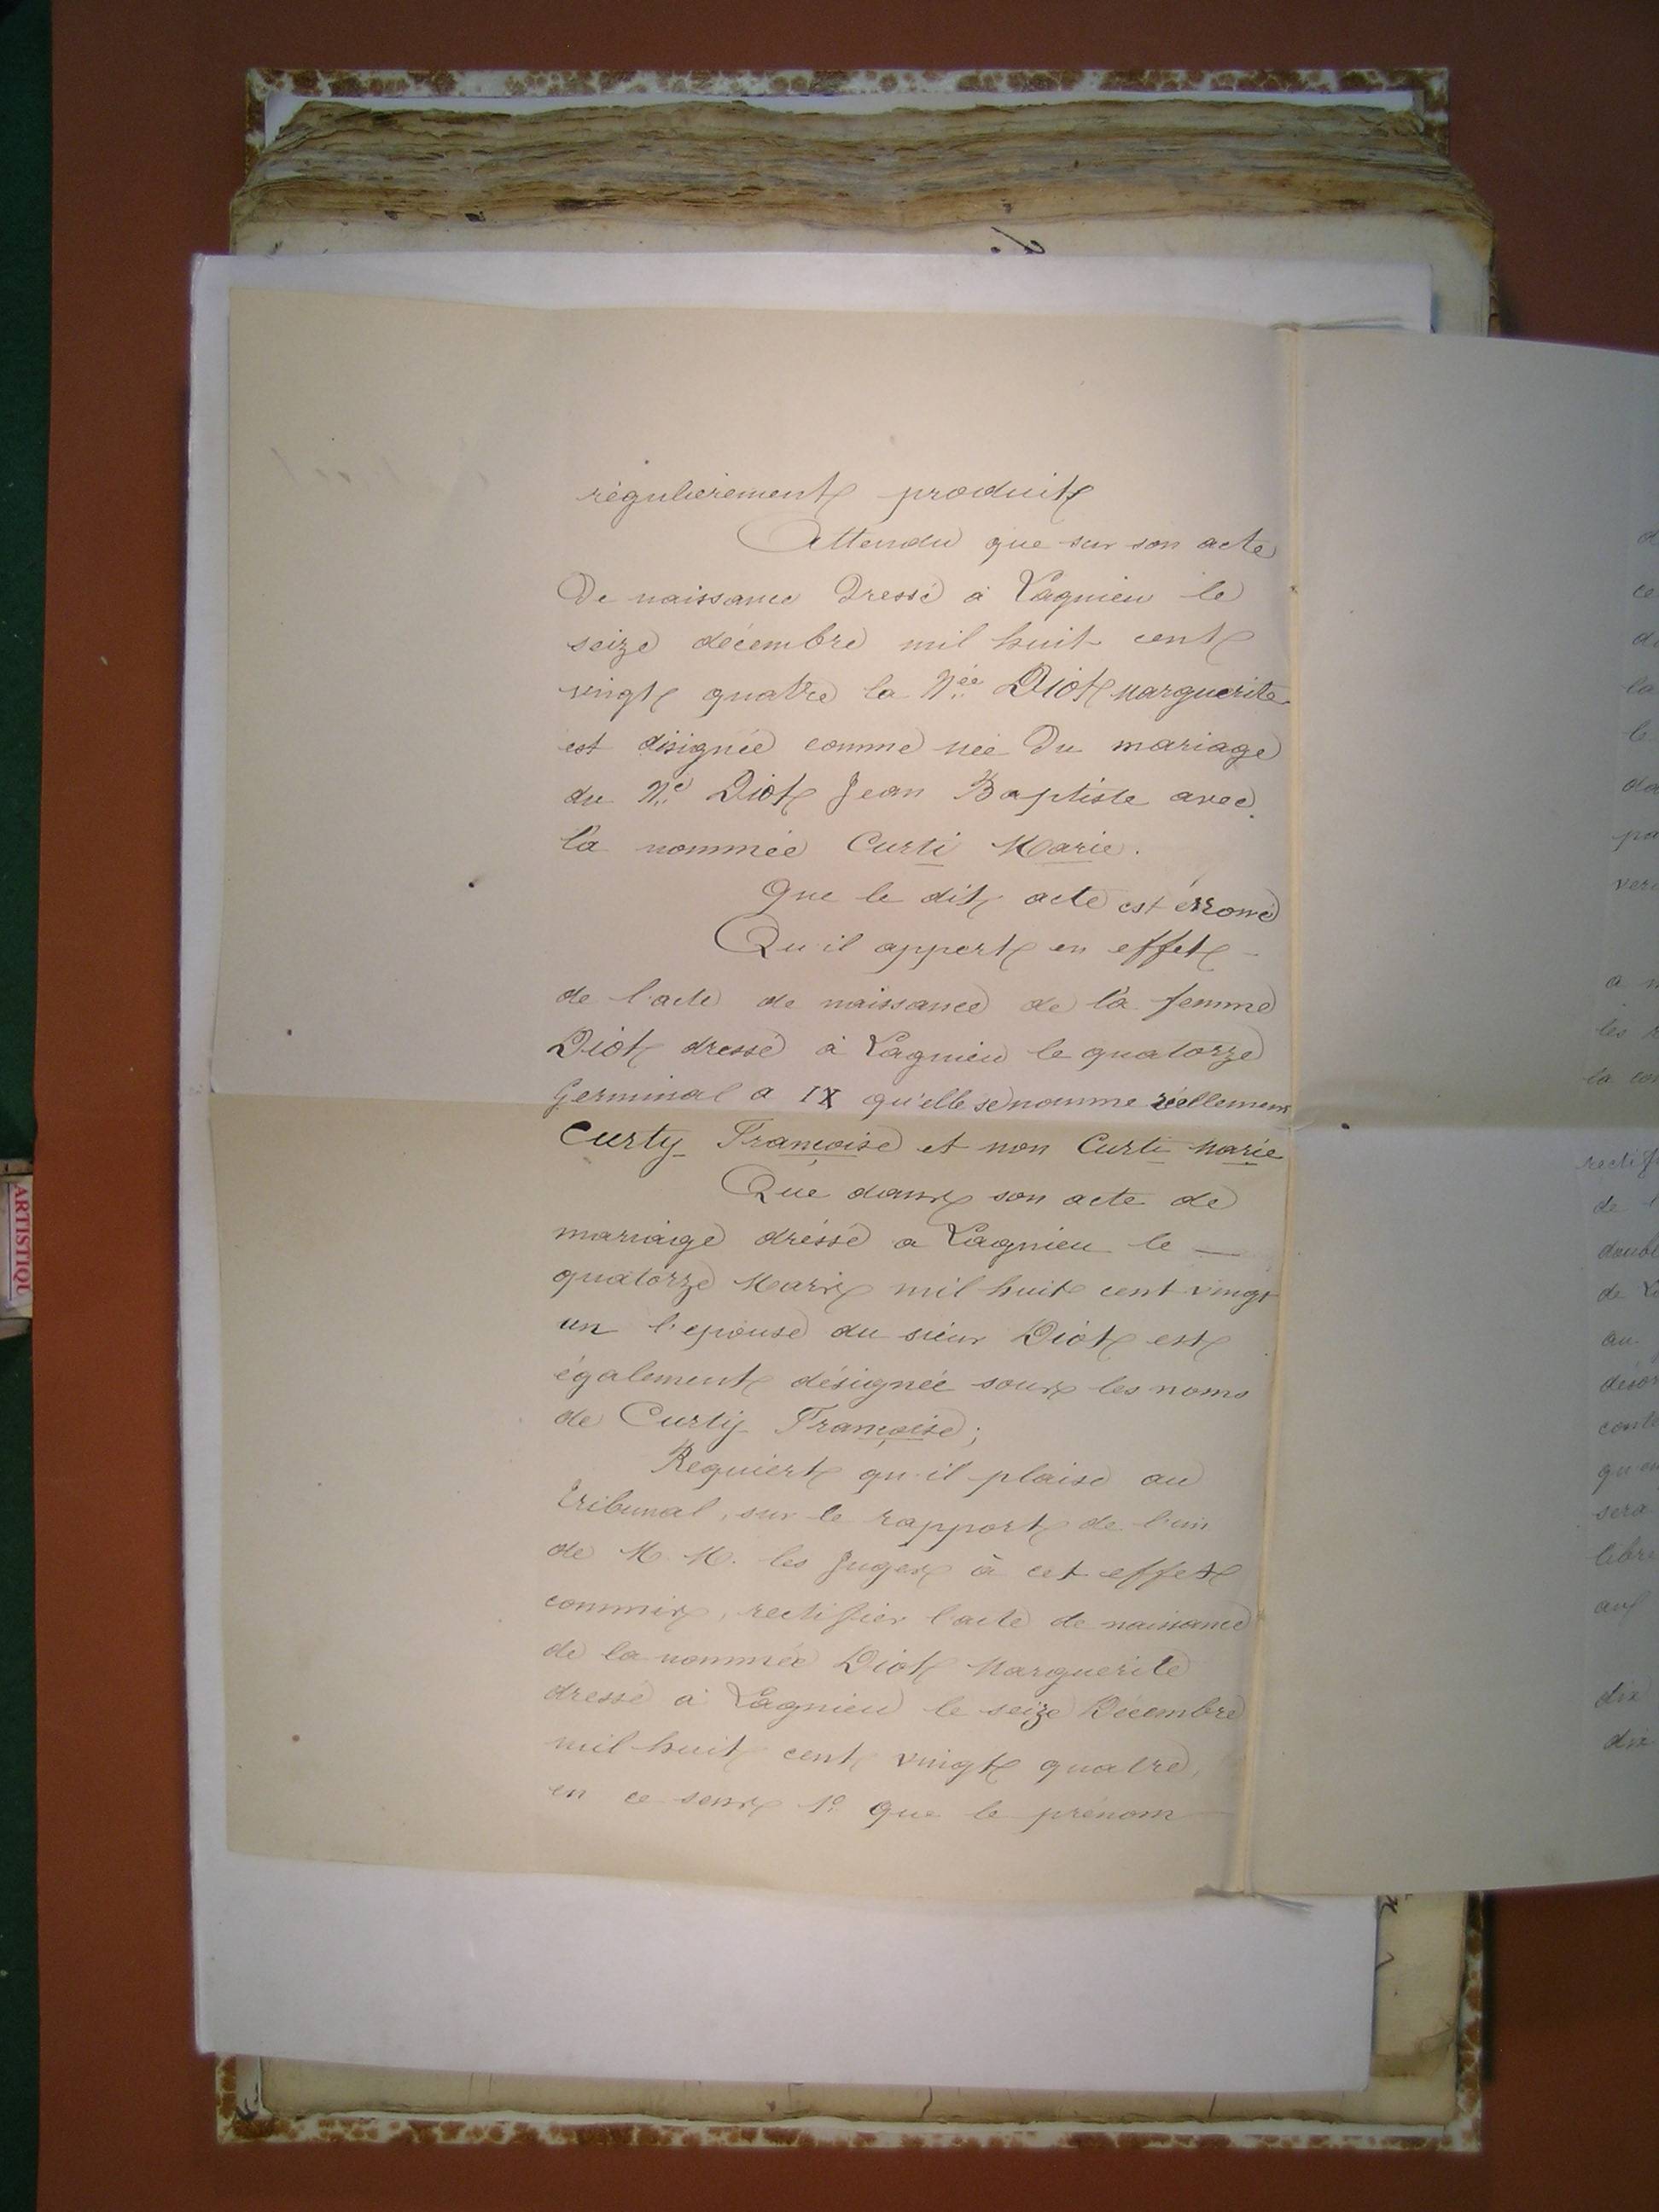 régulièrement produit
Attendu que sur son acte
De naissance Dressé à Lagnieu le
seize décembre mil huit cent
vingt quatre la Née Diot Marguerite
est désignée comme née Du mariage
du Né Diot Jean Baptiste avec
la nommée Curti Marie.
Que le dit acte est érroné
Qu'il appert en effet -
de l'acte de naissance de la femme
Diot dressé à Lagnieu le quatorze
Germinal a IX qu'elle se nomme réellement
Curty Françoise et non Curti Marie
Que dans son acte de
mariage dréssé a Lagnieu le —
quatorze Mars mil huit cent vingt
un l'epouse du sieur Diot est
également désignée sous les noms
de Curty Françoise;
Requiert qu'il plaise au
tribunal, sur le rapport de l'un
de M. M. les Juges à cet effet
commis, rectifier l'acte de naissance
de la nommée Diot Marguerite
dressé à Lagnieu le seize Décembre
mil huit cent vingt quatre,
en ce sens 1º que le prénom
ce
la
le
pa
a
les
la
rectif
de l
doubl
de
au
désor
qu'
sera
libre
dix
dix
ARTISTIQU